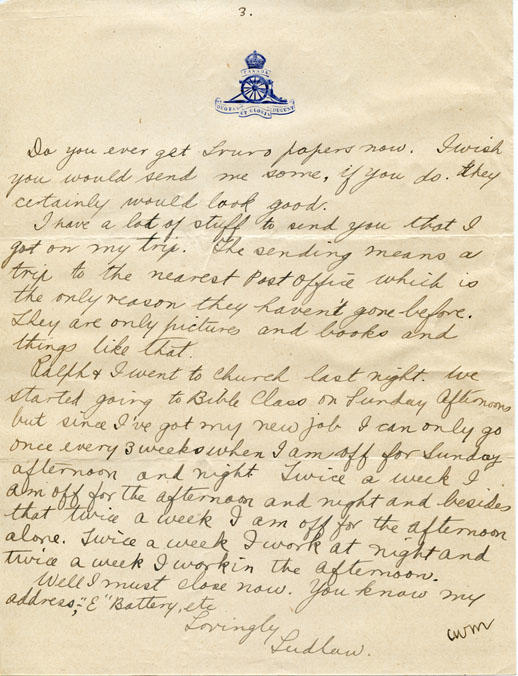 3.
CANADA
QUO FAS ET GLORIA DUCUNT
Do you ever get Truro papers now. I wish
you would send me some, if you do. they
certainly would look good.
I have a lot of stuff to send you that I
got on my trip. The sending means a
trip to the nearest Post Office which is
the only reason they haven't gone before.
They are only pictures and books and
things like that.
Ralph & I went to church last night. We
started going to Bible Class on Sunday Afternoons
but since I've got my new job I can only go
once every 3 weeks when I am off for Sunday
afternoon and night Twice a week I
am off for the afternoon and night and besides
that twice a week I am off for the afternoon
alone. Twice a week I work at night and
twice a week I work in the afternoon.
Well I must close now. You know my
address, "E" Battery, etc
Lovingly
Ludlow.
CWM